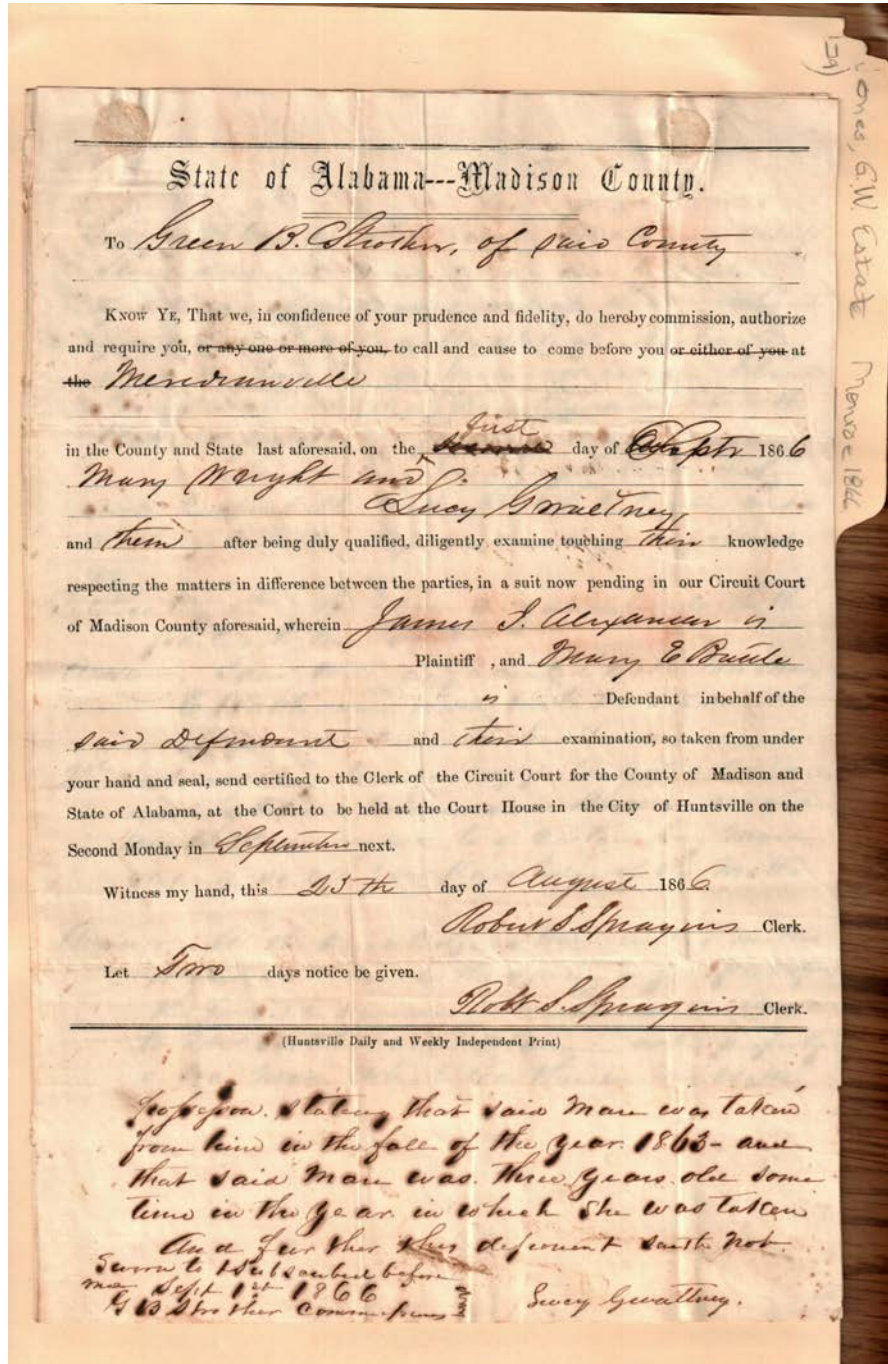 State of Alabama---Madison County.
To Green B. Strother, of said County
KNOW YE, That we, in confidence of your prudence and fidelity, do hereby commission, authorize
and require you, or any one or more of you, to call and cause to come before you or either of you at
the Meridianville
first
in the County and State last aforesaid, on the day of Septr 1866
Mary Wright and
Lucy Gwaltney,
and them after being duly qualified, diligently examine touching their knowledge
respecting the matters in difference between the parties, in a suit now pending in our Circuit Court
of Madison County aforesaid, wherein James S. Alexander is
Plaintiff , and Mary E Battle
is Defendant in behalf of the
said Defendant and their examination, so taken from under
your hand and seal, send certified to the Clerk of the Circuit Court for the County of Madison and
State of Alabama, at the Court to be held at the Court House in the City of Huntsville on the
Second Monday in September next.
Witness my hand, this 25th day of August 1866.
Robert S Spragins Clerk.
Let Two days notice be given.
Robt S. Spragins Clerk.
(Huntsville Daily and Weekly Independent Print)
possession. stating that said Mare was taken
from him in the fall of the year 1863- and
that said Mare was three years old some
time in the year in which she was taken
And further this deponent saith not.
Sworn to & subscribed before
me Sept 1st 1866
G B Strother Commissioner
Lucy Gwaltney.
Jones, G.W. Estate Monroe 1866